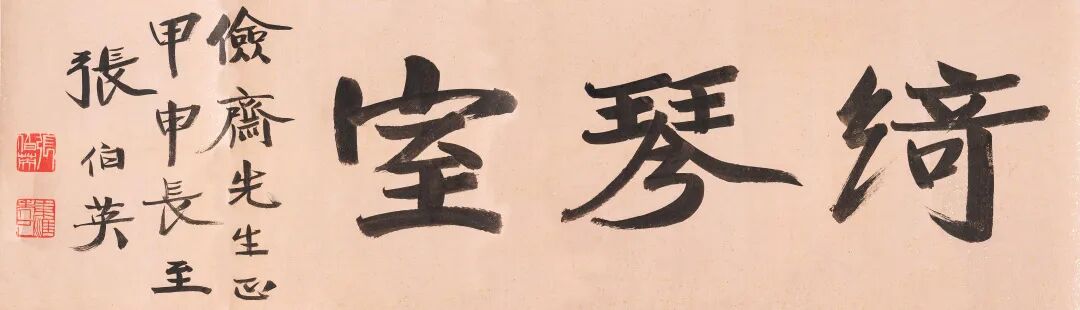 綺琴室
儉齋先生正
甲申長至
張伯英